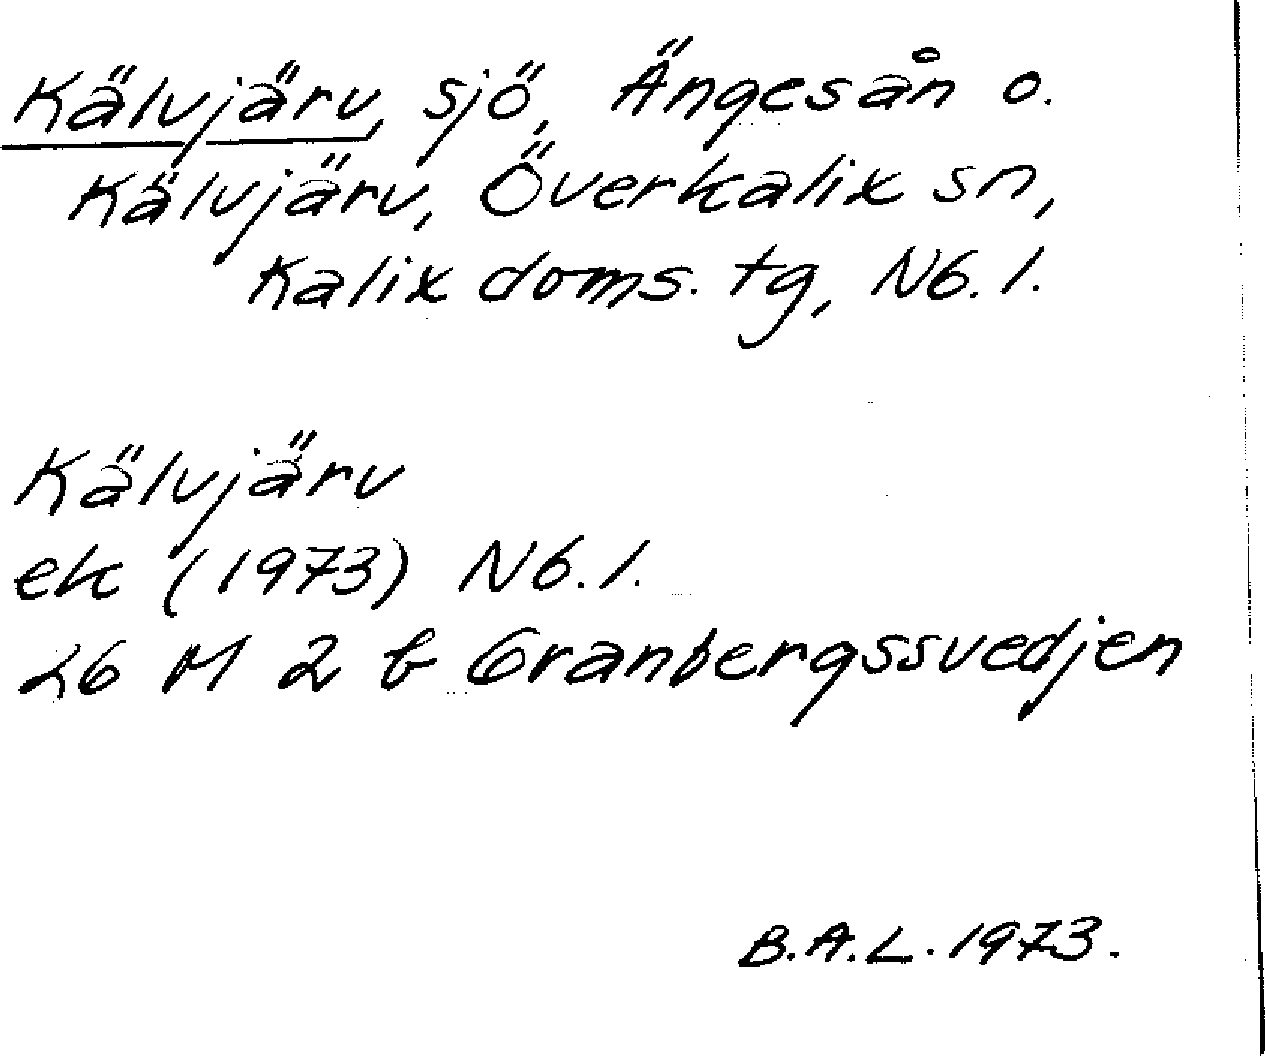 Kälvjärv, sjö, Ängesån o.
Kälvjärv, Överkalix sn,
Kalix doms. tg, Nb. l.
Kälvjärv
ek (1973) Nb. l.
26 M 2 b Granbergssvedjen
B.A.L. 1973.